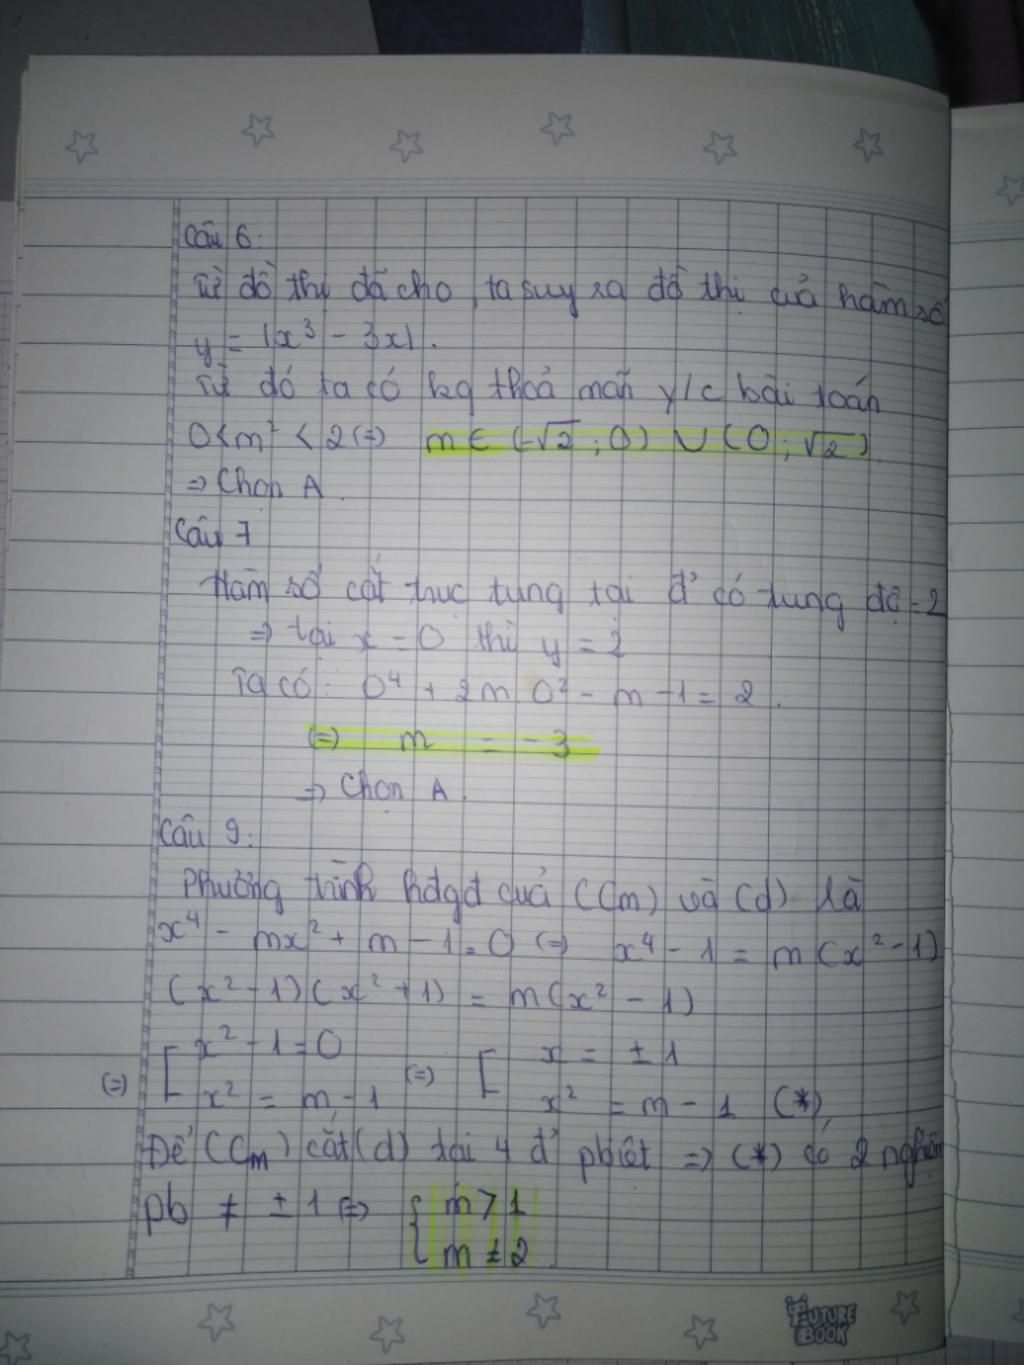 Câu 6:
Từ đồ thị đã cho, ta suy ra đồ thị của hàm số
y = |x³ - 3x|.
Từ đó ta có kq thoả mãn y/c bài toán
0 < m² < 2 (=) m ∈ (-√2 ; 0) ∪ (0 ; √2)
=> Chọn A.
Câu 7
Hàm số cắt trục tung tại đ' có tung độ = 2
=> tại x = 0 thì y = 2
Ta có: 0⁴ + 2m 0² - m - 1 = 2.
(=) m = -3
=> Chọn A.
Câu 9:
Phương trình hđgđ của (Cm) và (d) là
x⁴ - mx² + m - 1 = 0 (=) x⁴ - 1 = m (x² - 1)
(x² - 1) (x² + 1) = m(x² - 1)
x² - 1 = 0 x = ± 1
(=) [ x² = m - 1 (=) [ x² = m - 1 (*)
Để (Cm) cắt (d) tại 4 đ' pbiệt => (*) có 2 nghiệm
pb ≠ ± 1 (=) { m > 1
m ≠ 2
FUTURE
BOOK